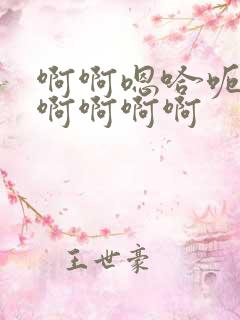 啊啊嗯哈呃
啊啊啊啊
王世豪